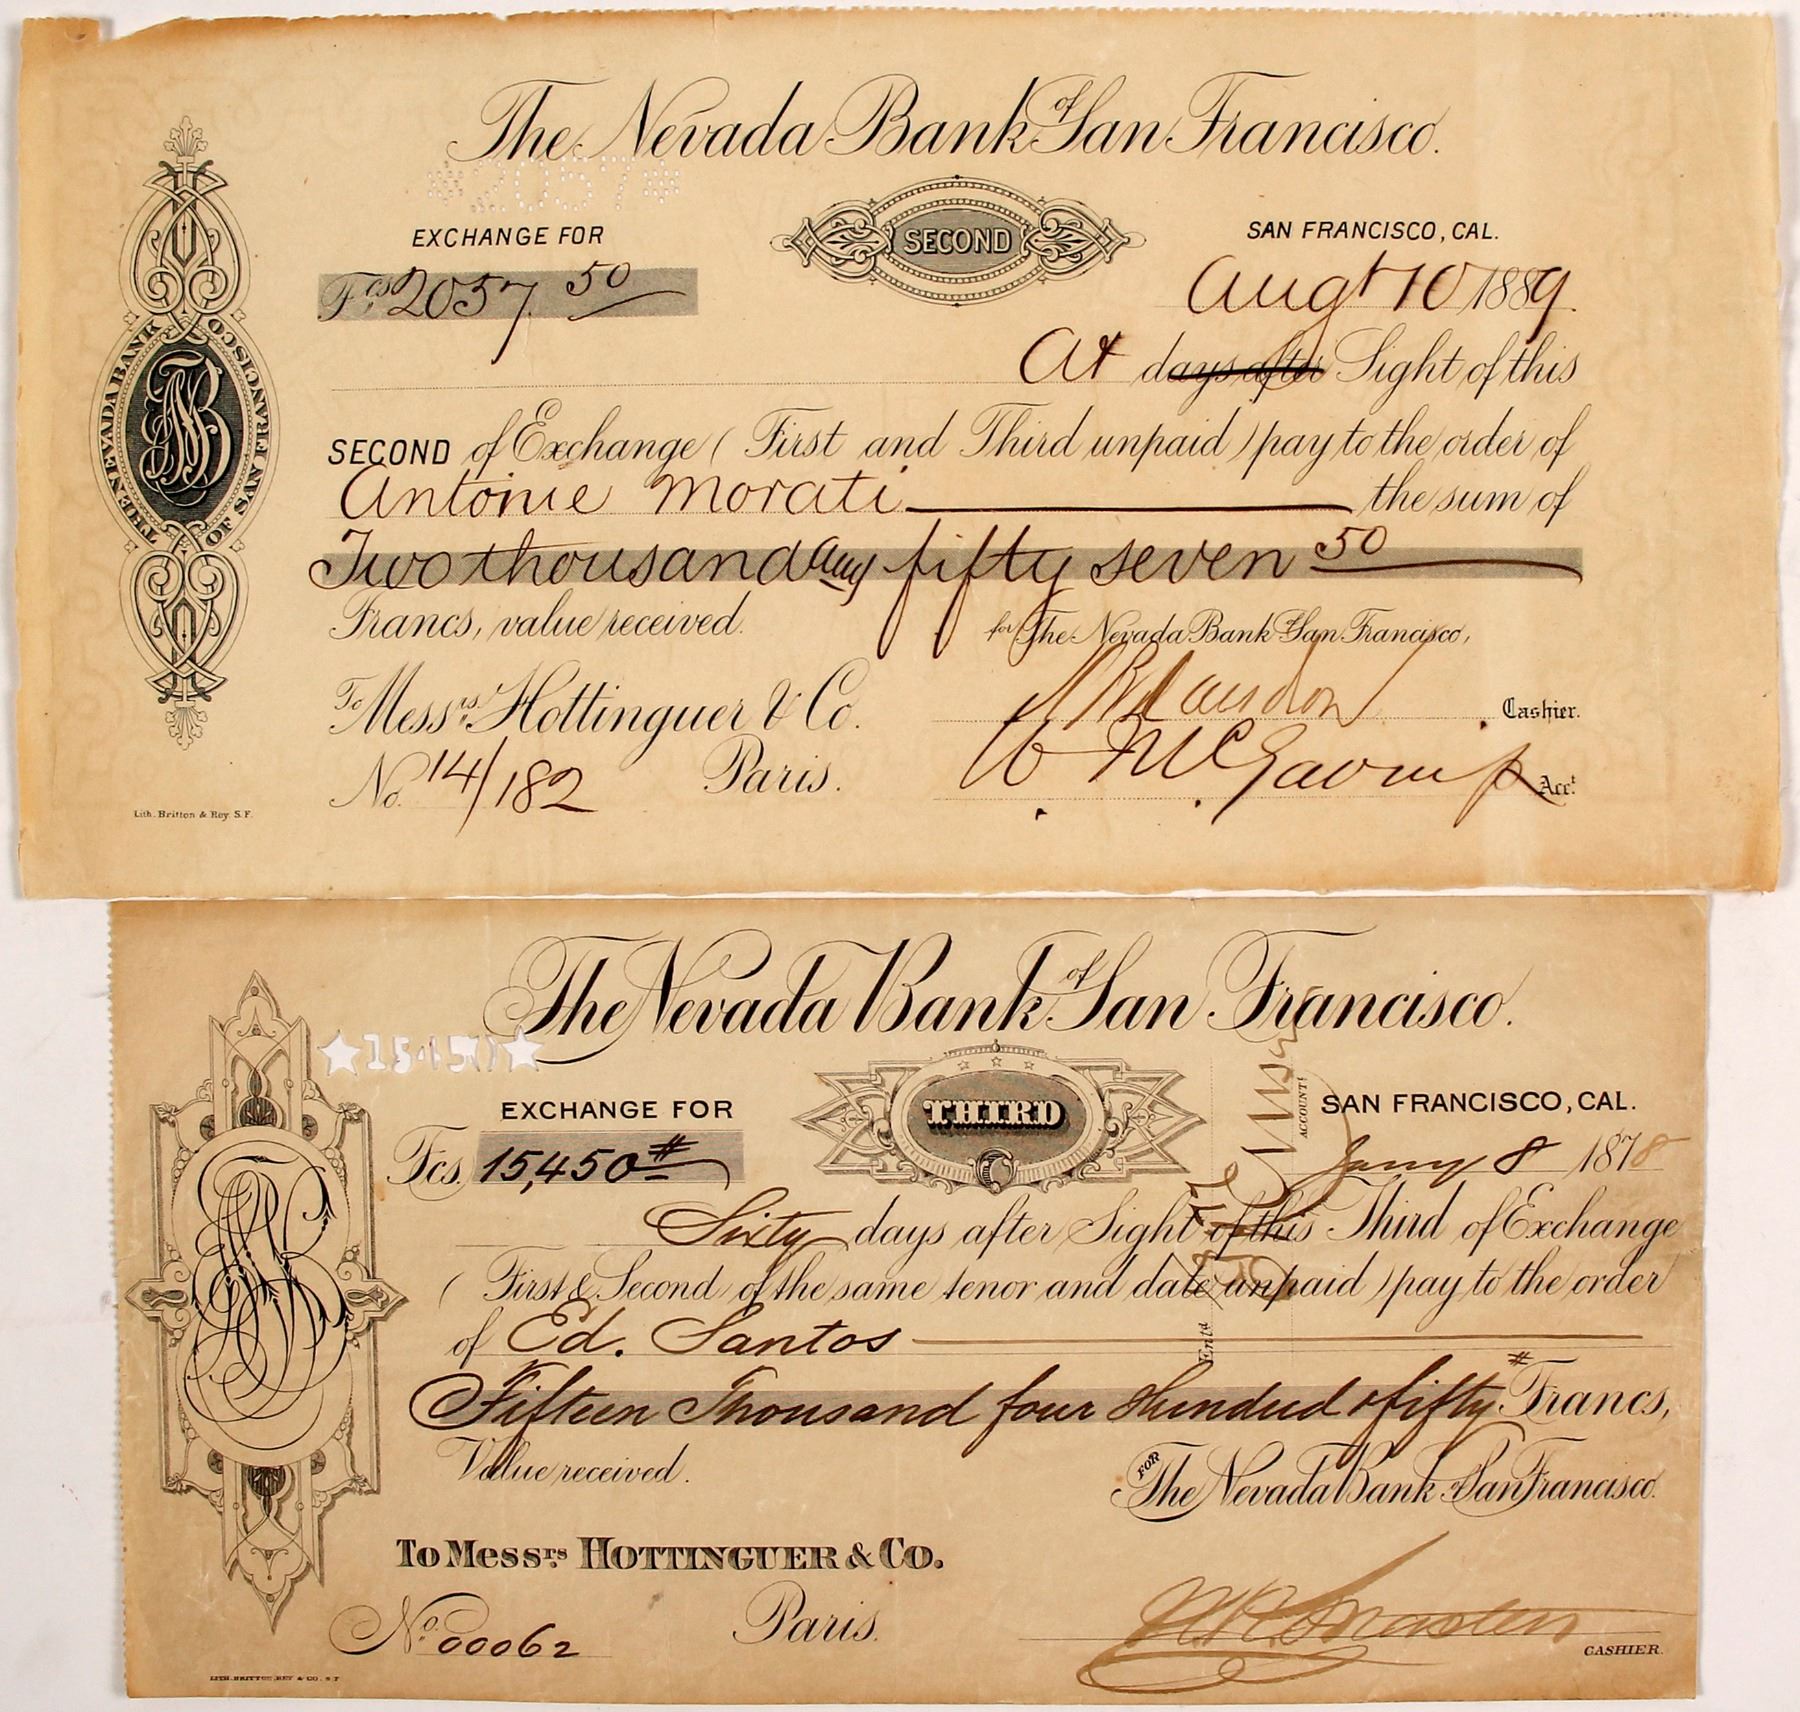 The Nevada Bank of San Francisco.
*2057*
EXCHANGE FOR
SECOND
SAN FRANCISCO, CAL.
Fcs 2057.50
Augt 10 1889.
At days after Sight of this
SECOND of Exchange ( First and Third unpaid ) pay to the order of
Antonie Morati the sum of
Two thousand and fifty seven 50
Francs, value received.
for The Nevada Bank of San Francisco,
To Messrs Hottinguer & Co.
Cashier.
No. 14/182
Paris.
Acct.
THE NEVADA BANK
OF SAN FRANCISCO
NB
Lith. Britton & Rey. S.F.
The Nevada Bank of San Francisco.
★15450★
EXCHANGE FOR
THIRD
SAN FRANCISCO, CAL.
Fcs. 15,450#
Jany 8 1878
Sixty days after Sight of this Third of Exchange
( First & Second of the same tenor and date unpaid ) pay to the order
of Ed. Santos
Fifteen Thousand four Hundred & fifty # Francs,
Value received.
FOR The Nevada Bank of San Francisco.
To Messrs HOTTINGUER & Co.
No. 00062
Paris.
CASHIER.
ACCOUNTt
Entd
LITH. BRITTON, REY & CO. S.F